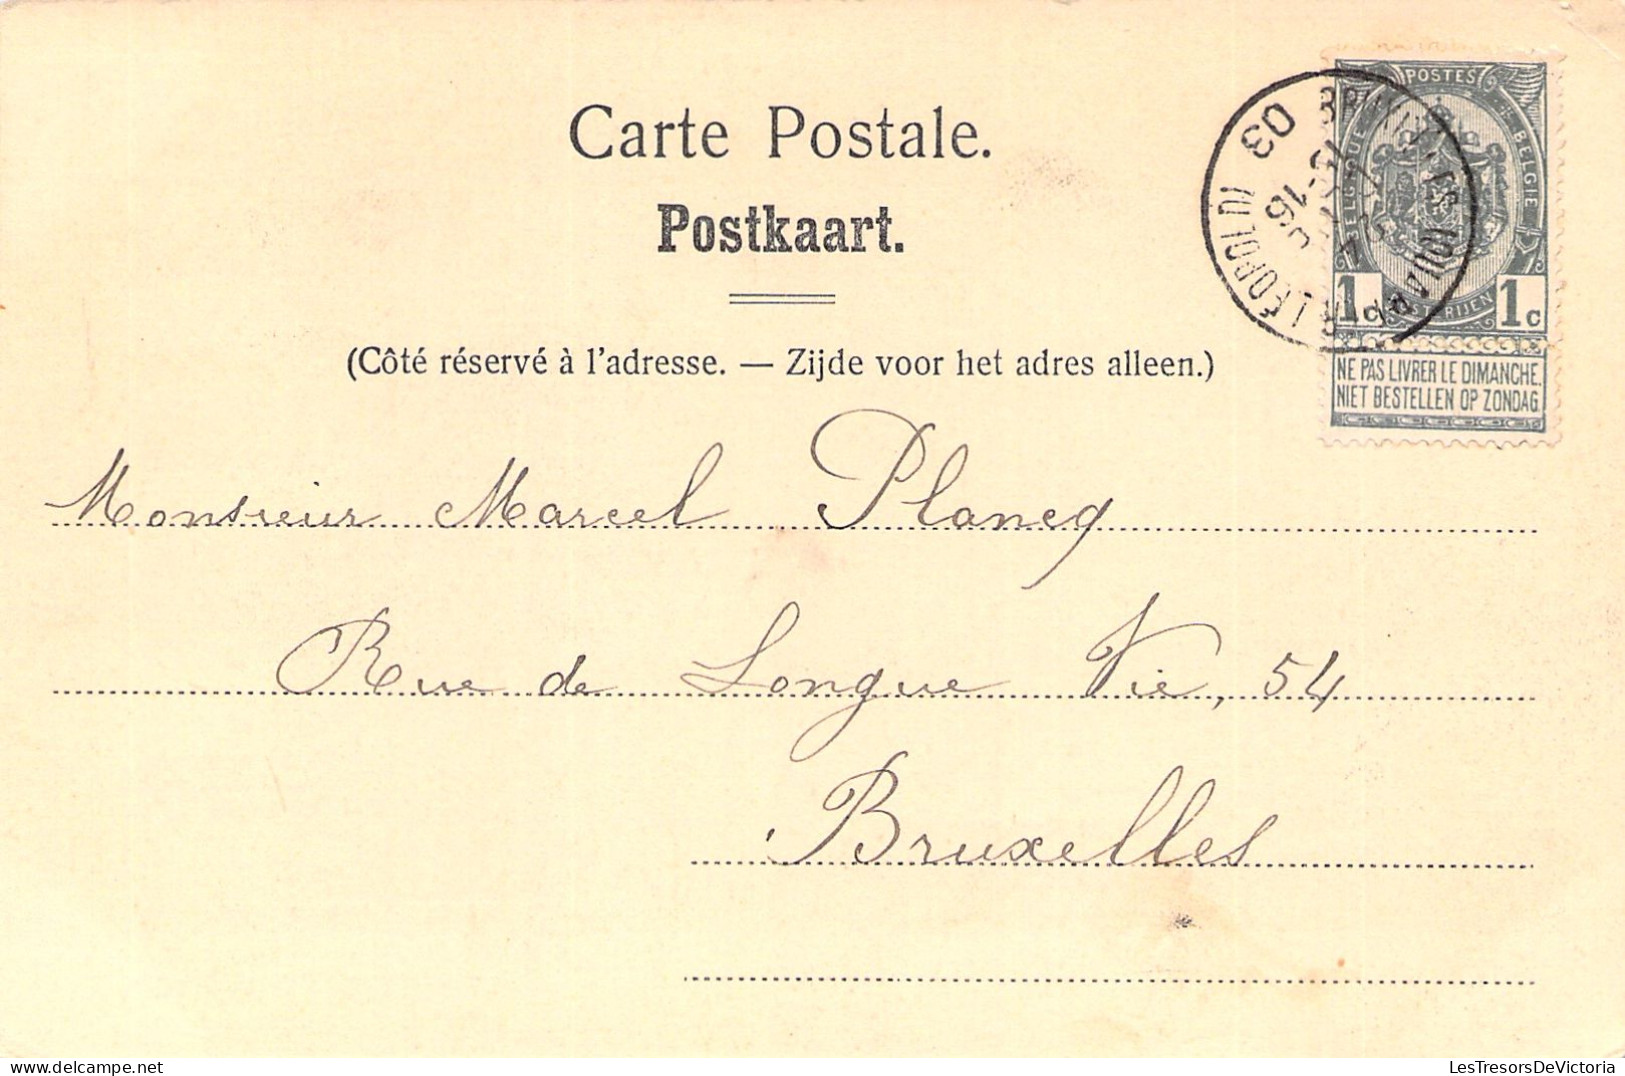 Carte Postale.
Postkaart.
(Côté réservé à l'adresse. — Zijde voor het adres alleen.)
POSTES
BELGIQUE
BELGIE
POSTERIJEN
1c 1c
NE PAS LIVRER LE DIMANCHE.
NIET BESTELLEN OP ZONDAG
BRUXELLES (QUARTIER LÉOPOLD)
03
Monsieur Marcel Plancq
Rue de Longue Vie, 54
Bruxelles
LesTresorsDeVictoria